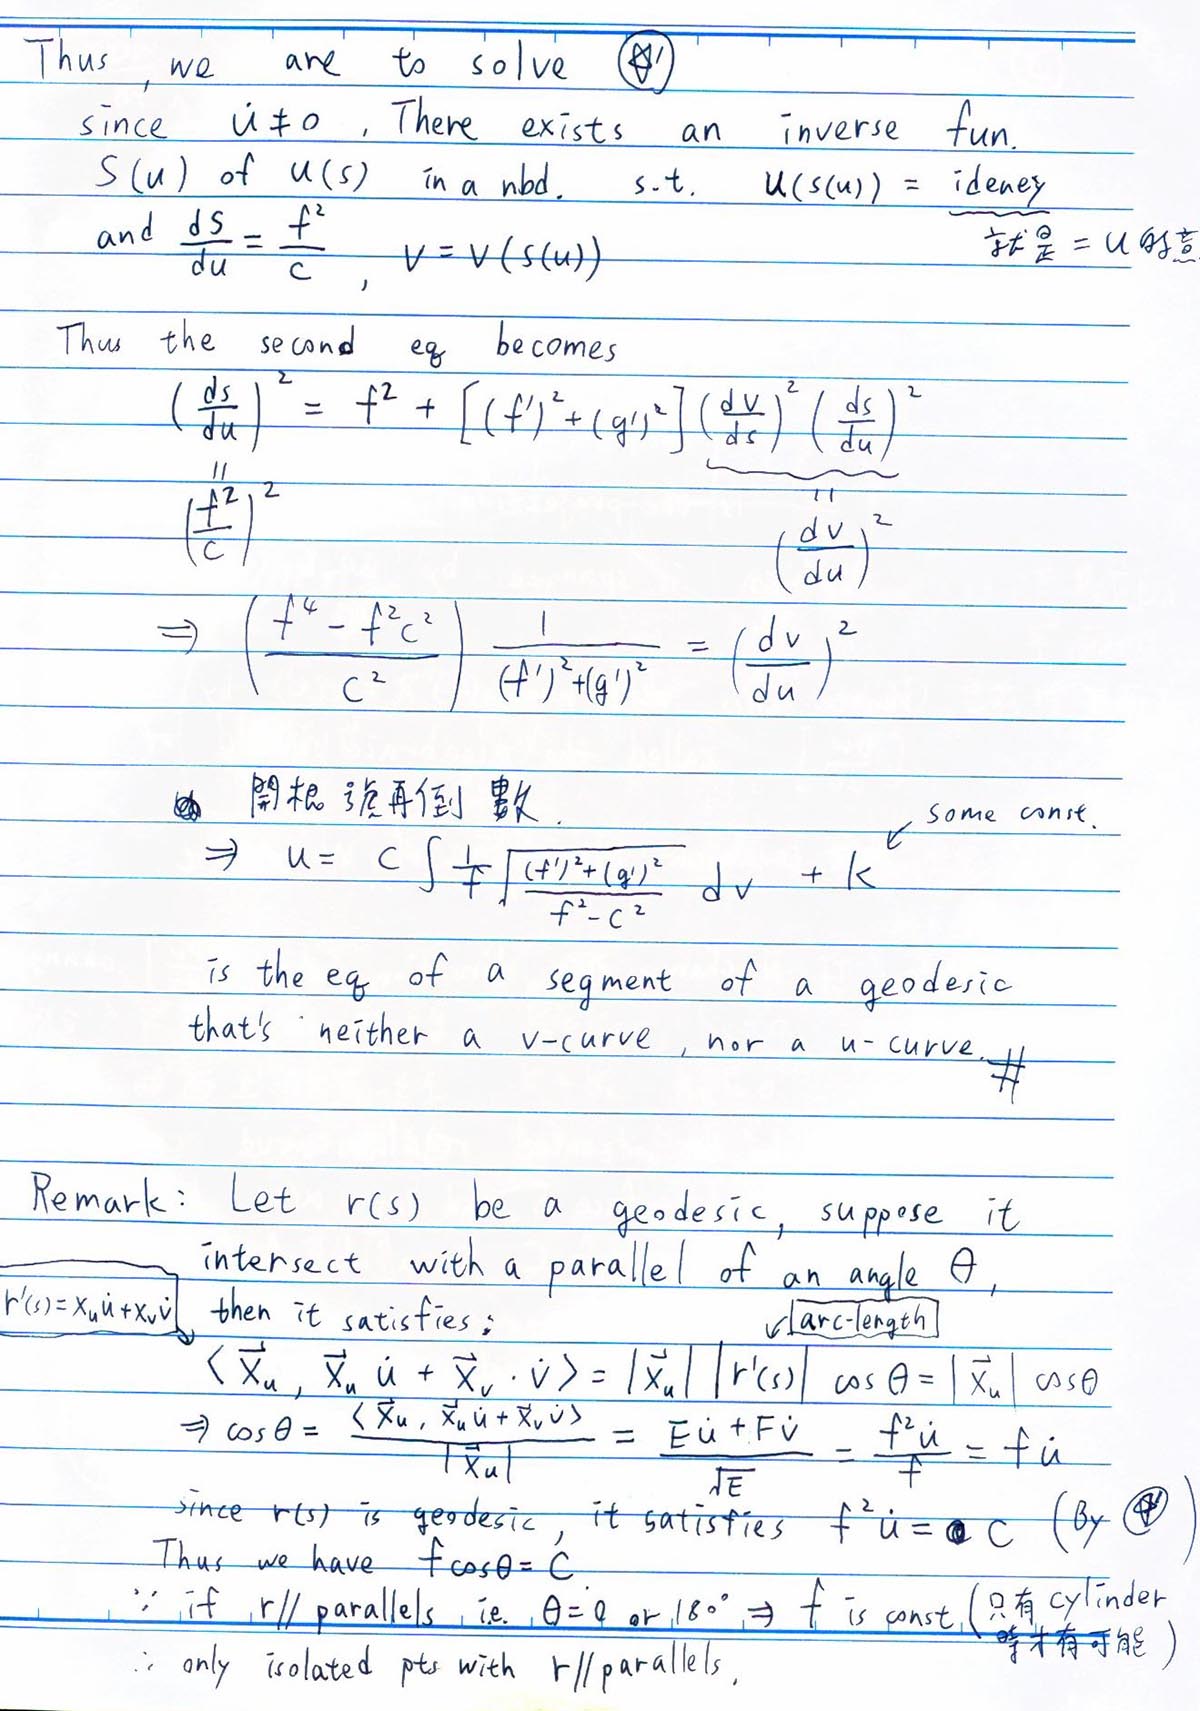 Thus, we are to solve ☆'
since u̇ ≠ 0, There exists an inverse fun.
S(u) of u(s) in a nbd. s.t. u(s(u)) = ideney
就是 = u 的意
and dS/du = f²/c , v = v(s(u))
Thus the second eq becomes
(ds/du)² = f² + [(f')² + (g')²] (dv/ds)² (ds/du)²
= (f²/c)²
= (dv/du)²
⇒ ((f⁴ - f²c²)/c²) 1/((f')² + (g')²) = (dv/du)²
開根號再倒數.
some const.
⇒ u = c ∫ 1/f √(((f')² + (g')²)/(f² - c²)) dv + k
is the eq of a segment of a geodesic
that's neither a v-curve, nor a u-curve. #
Remark: Let r(s) be a geodesic, suppose it
intersect with a parallel of an angle θ,
r'(s) = Xᵤu̇ + Xᵥv̇
then it satisfies:
arc-length
⟨X⃗ᵤ, X⃗ᵤ u̇ + X⃗ᵥ · v̇⟩ = |X⃗ᵤ| |r'(s)| cos θ = |X⃗ᵤ| cosθ
⇒ cosθ = ⟨X⃗ᵤ, X⃗ᵤu̇ + X⃗ᵥv̇⟩/|X⃗ᵤ| = (Eu̇ + Fv̇)/√E = f²u̇/f = f u̇
since r(s) is geodesic, it satisfies f²u̇ = c (By ☆')
Thus we have f cosθ = c
∵ if r // parallels i.e. θ = 0 or 180° ⇒ f is const (只有 cylinder
時才有可能)
∴ only isolated pts with r // parallels.